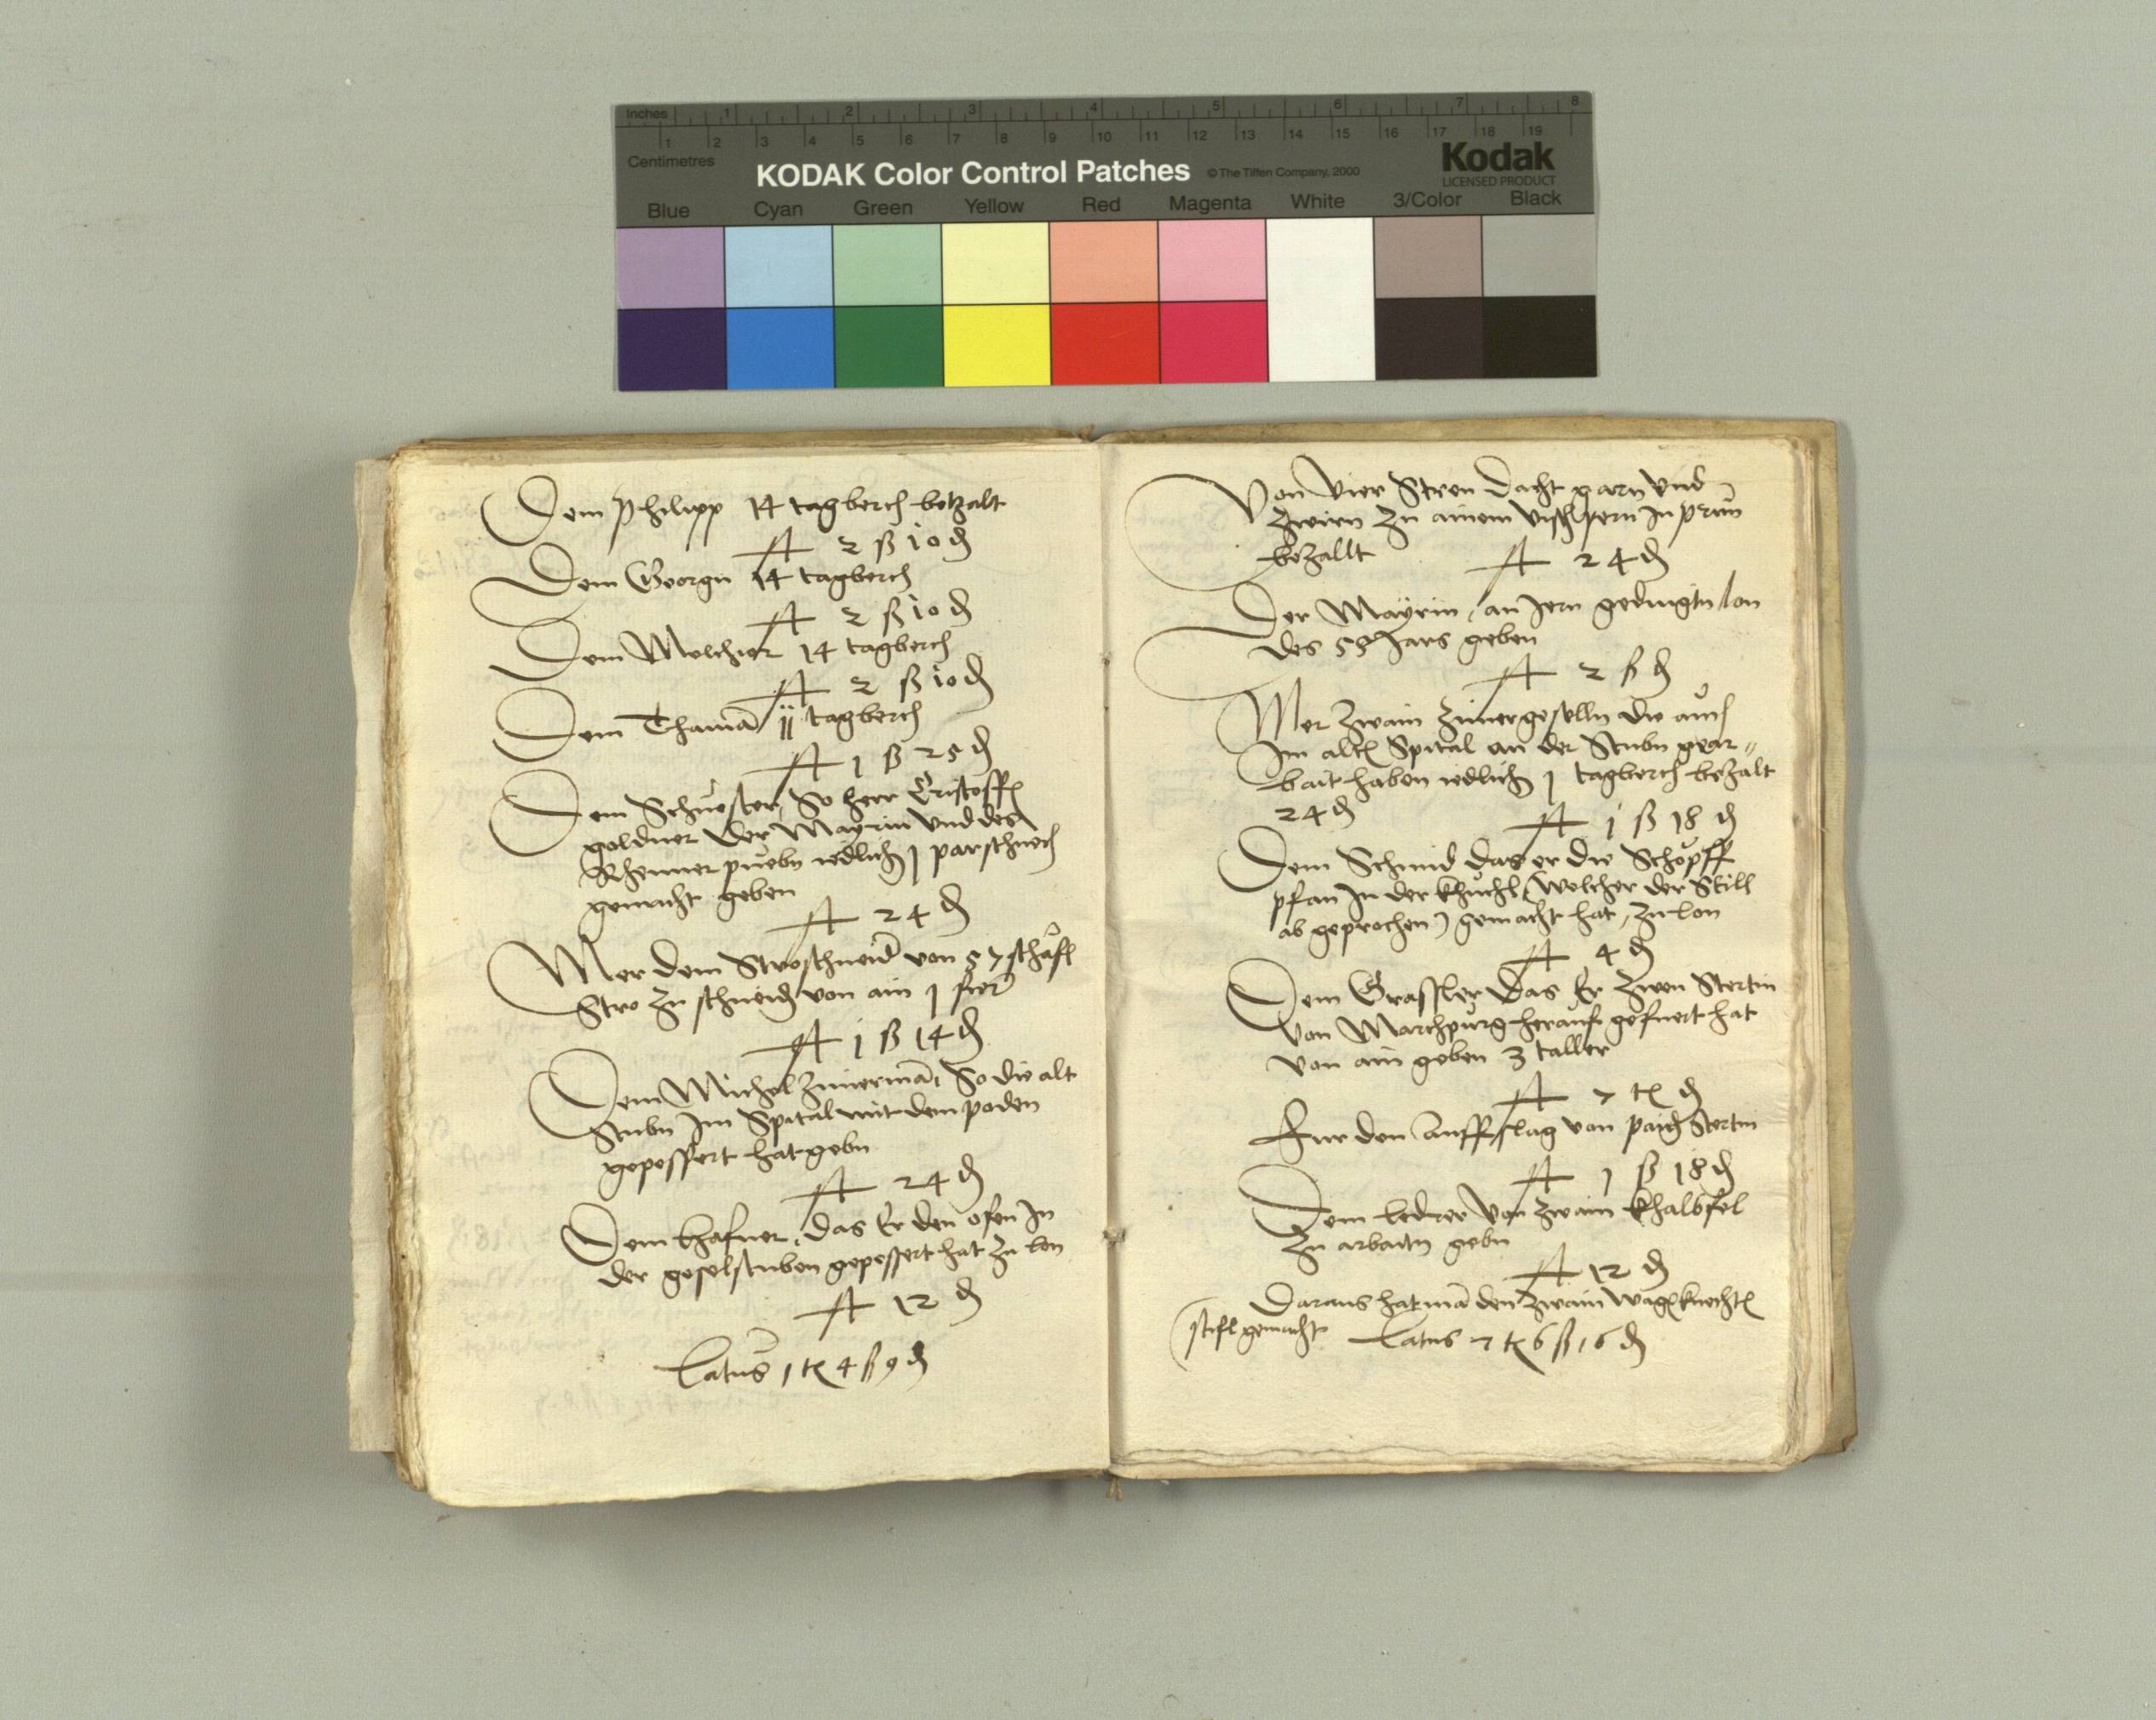 Inches 1 2 3 4 5 6 7 8
1 2 3 4 5 6 7 8 9 10 11 12 13 14 15 16 17 18 19
Centimetres
KODAK Color Control Patches © The Tiffen Company, 2000 Kodak
LICENSED PRODUCT
Blue Cyan Green Yellow Red Magenta White 3/Color Black
Dem Philipp 14 tagberch betzalt
A 2 ß 10 ₰
Dem Georgn 14 tagberch
A 2 ß 10 ₰
Dem Melchior 14 tagberch
A 2 ß 10 ₰
Dem Thaman 11 tagberch
A 1 ß 25 ₰
Dem Schuester, So herr Cristoff
goldner der Mayrin vnd des
Rhenner puebn iedlich 1 par schuech
gemacht geben
A 24 ₰
Mer dem Stroschneid von 57 schäfl
Stro zu schneid von ain 1 fier
A 1 ß 14 ₰
Dem Michel Zimerman, So die alt
Stubn Im Spital mit dem poden
gepessert hat gebn
A 24 ₰
Dem hafner, das Er den ofen In
der geselstuben gepessert hat zu lon
A 12 ₰
Latus 1 tl 4 ß 9 ₰
Von vier Stren dacht garn vnd
Zwirn zu ainem vischpern In prun
bezallt A 24 ₰
Der Mayrin, an Jern gedingtn lon
des 53 Jars geben
A 2 ß ₰
Mer zwain Zimergeselln die auch
Im altn Spital an der Stubn gear〃
bait haben iedlich 1 tagberch bezalt
24 ₰
A 1 ß 18 ₰
Dem Schmid das er die Schöpff
pfan In der khuchl (welcher der Still
ab geprochen) gemacht hat, zu lon
A 4 ₰
Dem Grassler das Er zwen Stertin
von Marchpurg herauf gefuert hat
von ain geben 3 taller
A 7 tl ₰
Fur den Auffslag von paid Stertin
A 1 ß 18 ₰
Dem Ledrer von zwain khalbfel
zu arbaitn gebn
A 12 ₰
Daraus hat man den zwain wagnknechtn
stifl gemacht Latus 7 tl 6 ß 16 ₰